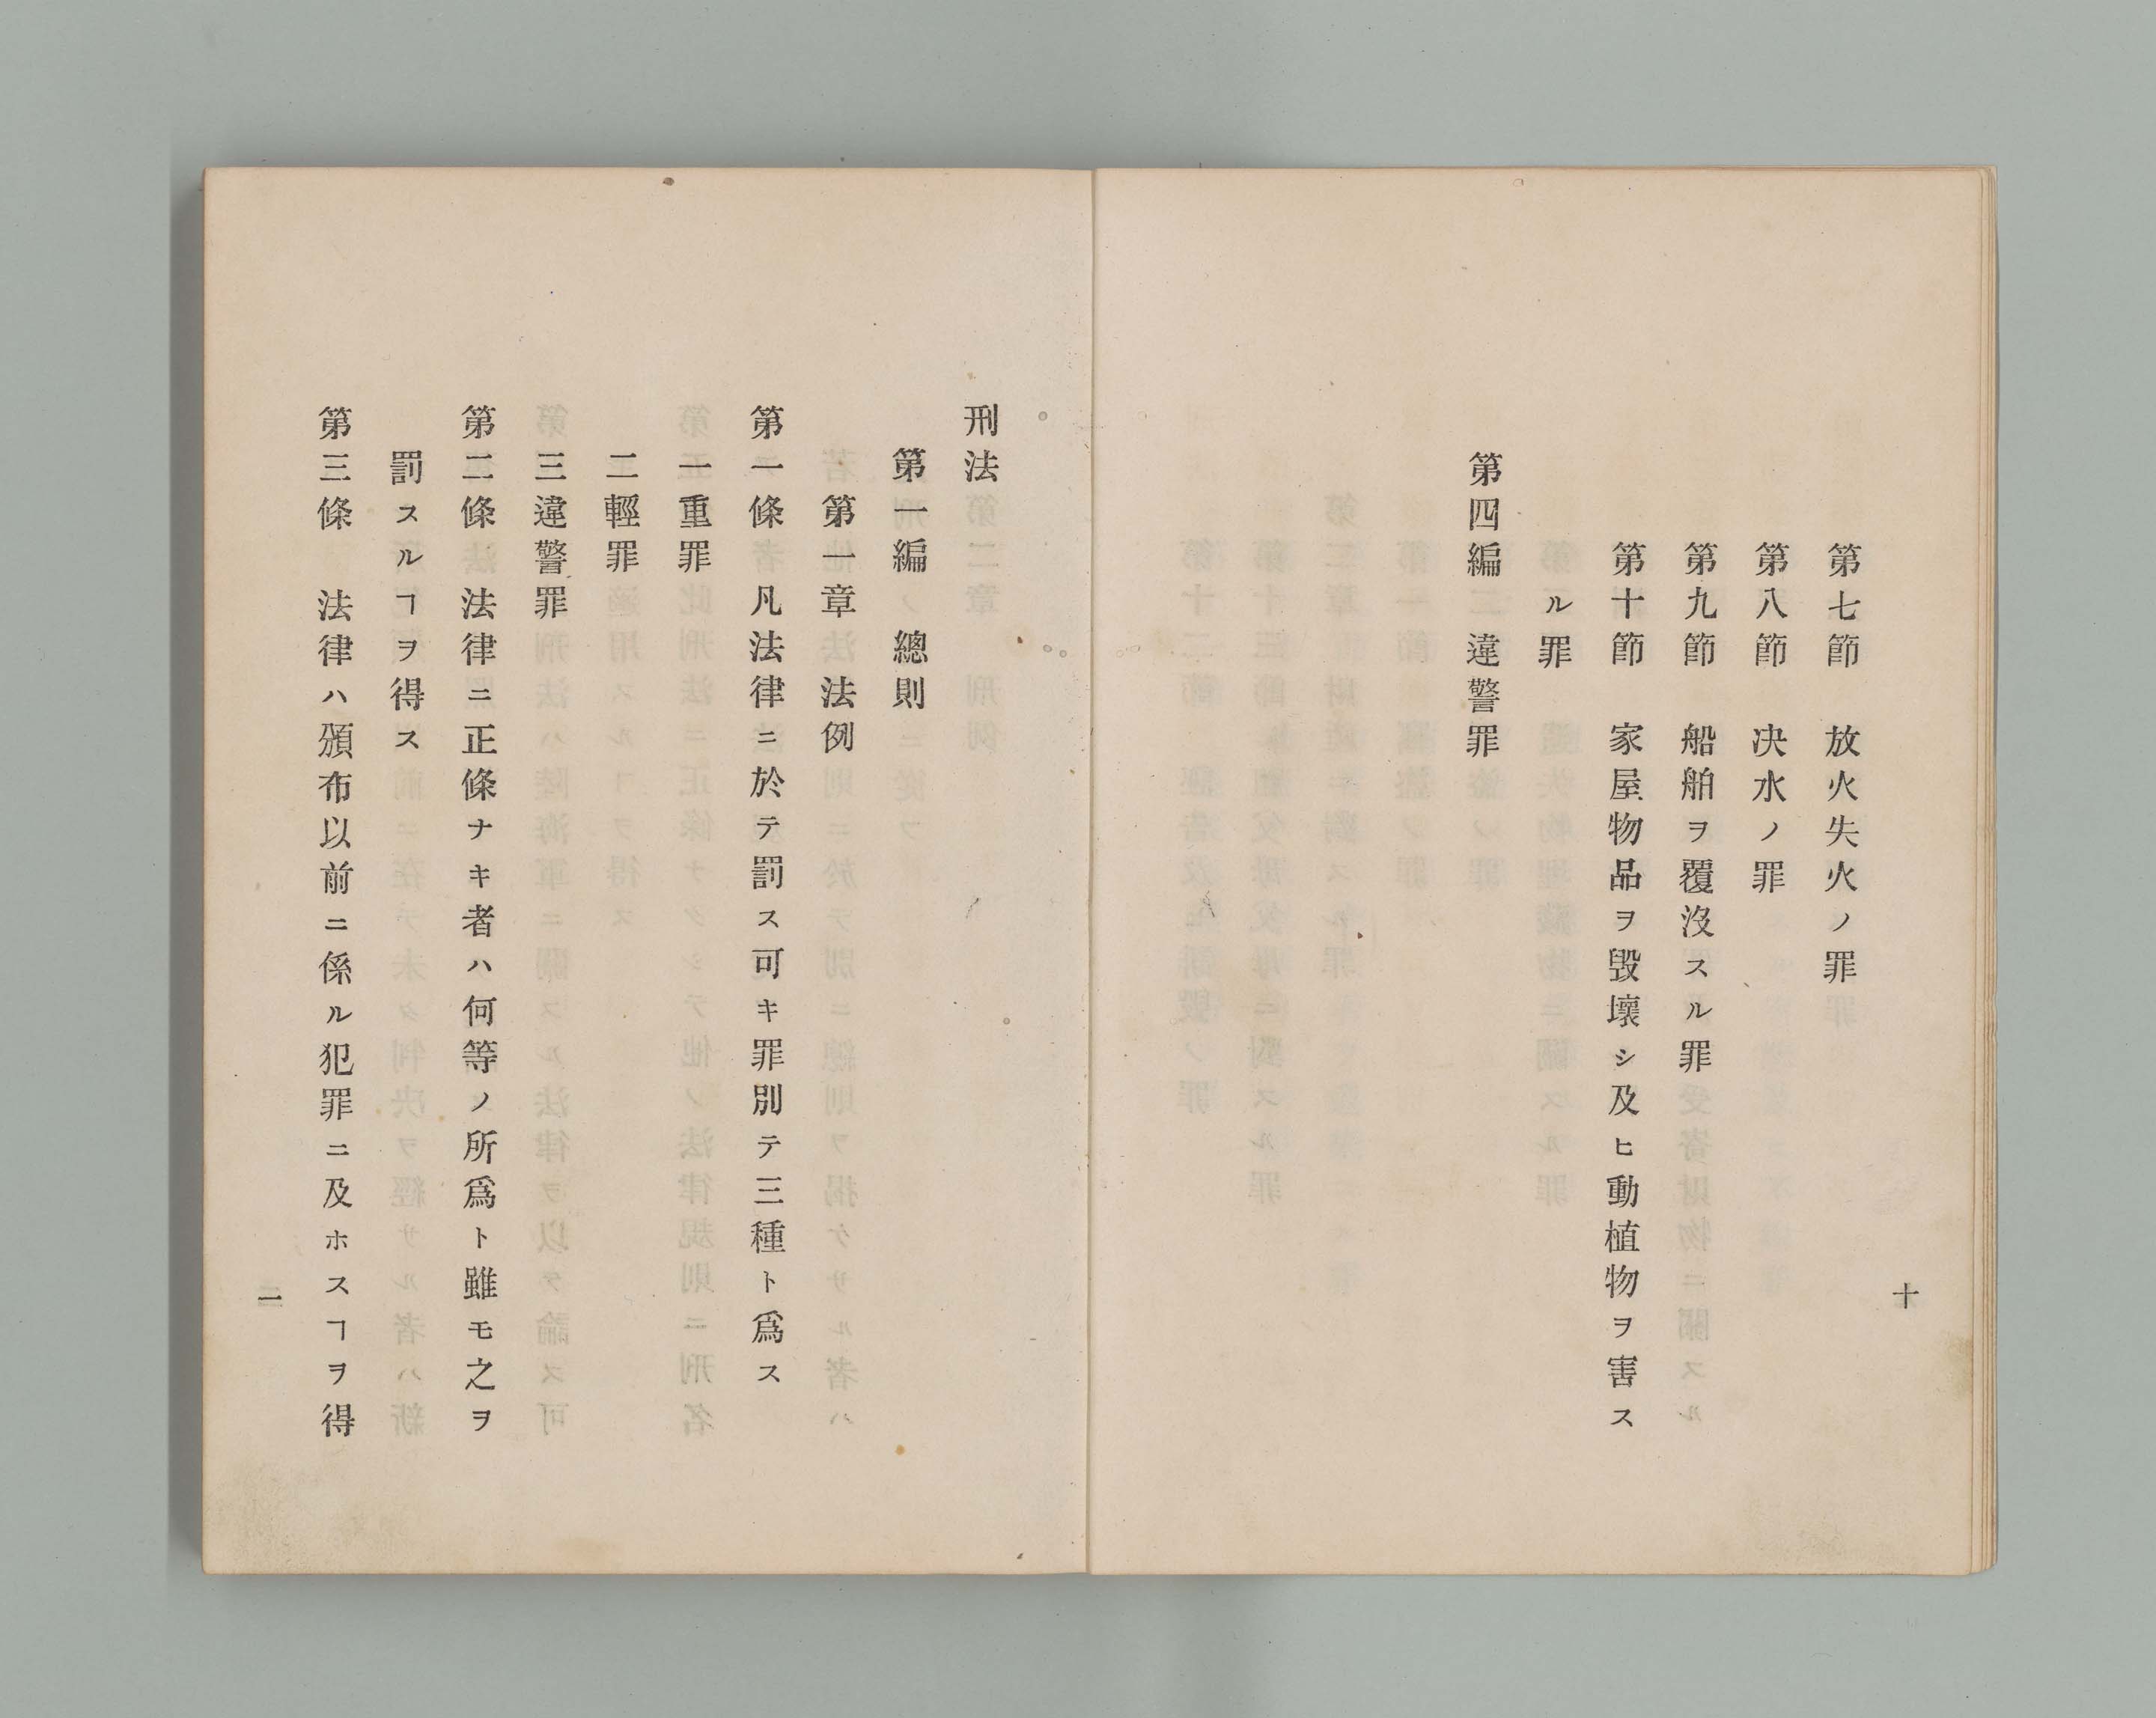 第七節　放火失火ノ罪
第八節　决水ノ罪
第九節　船舶ヲ覆沒スル罪
第十節　家屋物品ヲ毀壞シ及ヒ動植物ヲ害ス
ル罪
第四編　違警罪
十
刑法
第一編　總則
第一章　法例
第一條　凡法律ニ於テ罰ス可キ罪別テ三種ト爲ス
一重罪
二輕罪
三違警罪
第二條　法律ニ正條ナキ者ハ何等ノ所爲ト雖モ之ヲ
罰スルヿヲ得ス
第三條　法律ハ頒布以前ニ係ル犯罪ニ及ホスヿヲ得
一